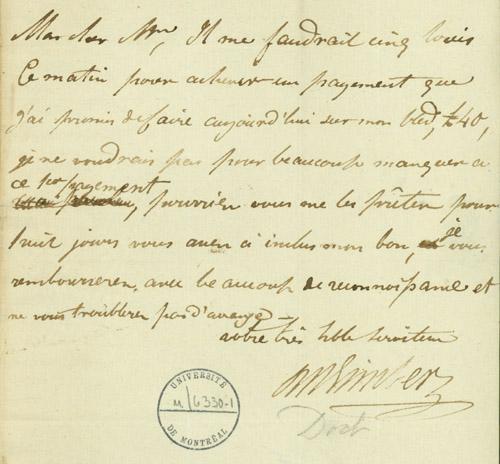 Mon cher Mr, Il me faudrait cinq louis
ce matin pour achever un payement que
j'ai promis de faire aujourd'hui sur mon bled, 40,
je ne voudrais pas pour beaucoup manquer à
ce 1er payement
, pourriez vous me les prêter pour
huit jours vous avez ci inclus mon bon, je vous
rembourserez avec beaucoup de reconnoissance et
ne vous troublerez pas d'avange
votre très hble serviteur
Doct
UNIVERSITÉ
M 6330-1
DE MONTRÉAL